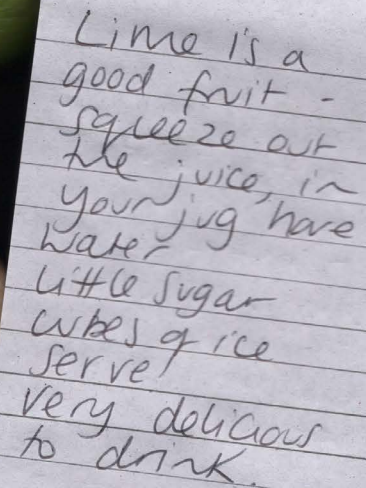 Lime is a
good fruit -
squeeze out
the juice, in
your jug have
water
little sugar
cubes of ice
serve!
very delicious
to drink.